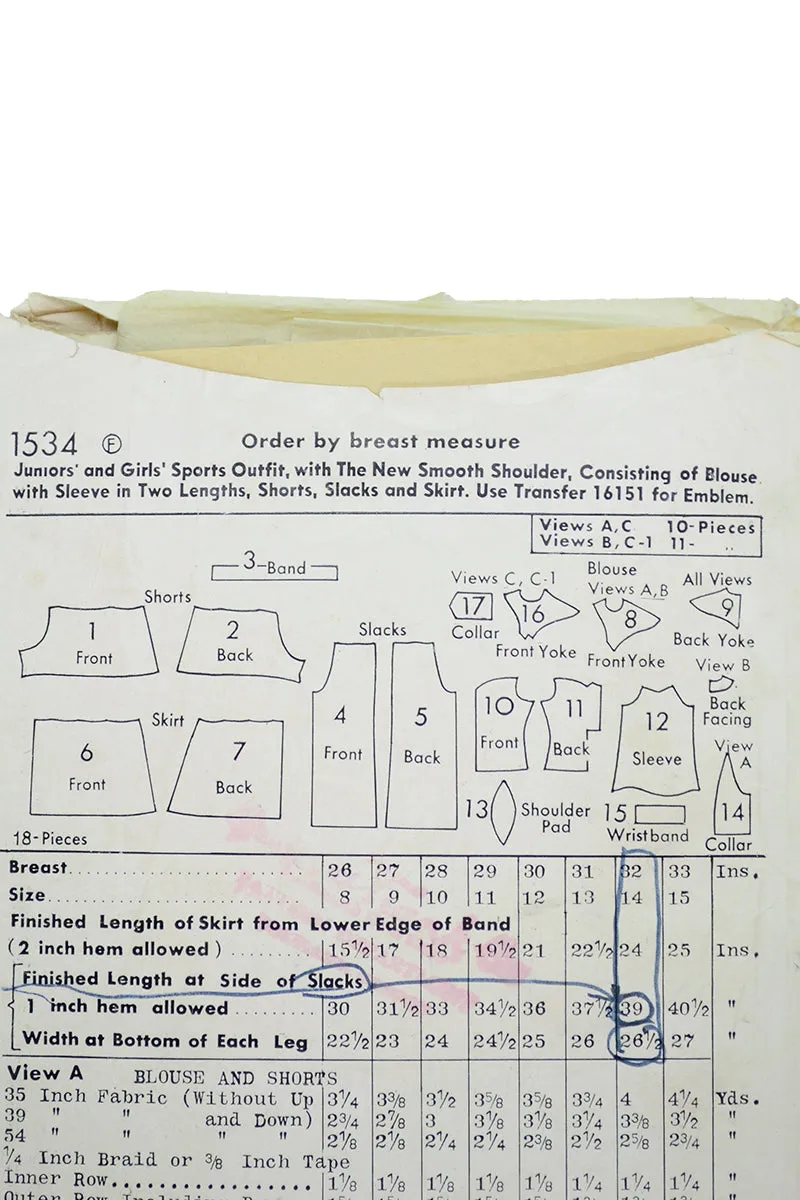 1534 Ⓕ Order by breast measure
Juniors' and Girls' Sports Outfit, with The New Smooth Shoulder, Consisting of Blouse
with Sleeve in Two Lengths, Shorts, Slacks and Skirt. Use Transfer 16151 for Emblem.
Views A,C 10-Pieces
Views B, C-1 11- "
3-Band
Shorts
1 Front
2 Back
Slacks
4 Front
5 Back
Skirt
6 Front
7 Back
Views C, C-1
17 Collar
16 Front Yoke
Blouse
Views A,B
8 Front Yoke
All Views
9 Back Yoke
10 Front
11 Back
12 Sleeve
View B
Back
Facing
View A
14 Collar
13 Shoulder Pad
15 Wristband
18-Pieces
Breast 26 27 28 29 30 31 32 33 Ins.
Size 8 9 10 11 12 13 14 15
Finished Length of Skirt from Lower Edge of Band
(2 inch hem allowed) 15½ 17 18 19½ 21 22½ 24 25 Ins.
Finished Length at Side of Slacks
1 inch hem allowed 30 31½ 33 34½ 36 37½ 39 40½ "
Width at Bottom of Each Leg 22½ 23 24 24½ 25 26 26½ 27 "
View A BLOUSE AND SHORTS
35 Inch Fabric (Without Up 3¼ 3⅜ 3½ 3⅝ 3⅝ 3¾ 4 4¼ Yds.
39 " " and Down) 2¾ 2⅞ 3 3⅛ 3⅛ 3¼ 3⅜ 3½ "
54 " " " " 2⅛ 2⅛ 2¼ 2¼ 2⅜ 2½ 2⅝ 2¾ "
¼ Inch Braid or ⅜ Inch Tape
Inner Row 1⅛ 1⅛ 1⅛ 1⅛ 1⅛ 1¼ 1¼ 1¼ "